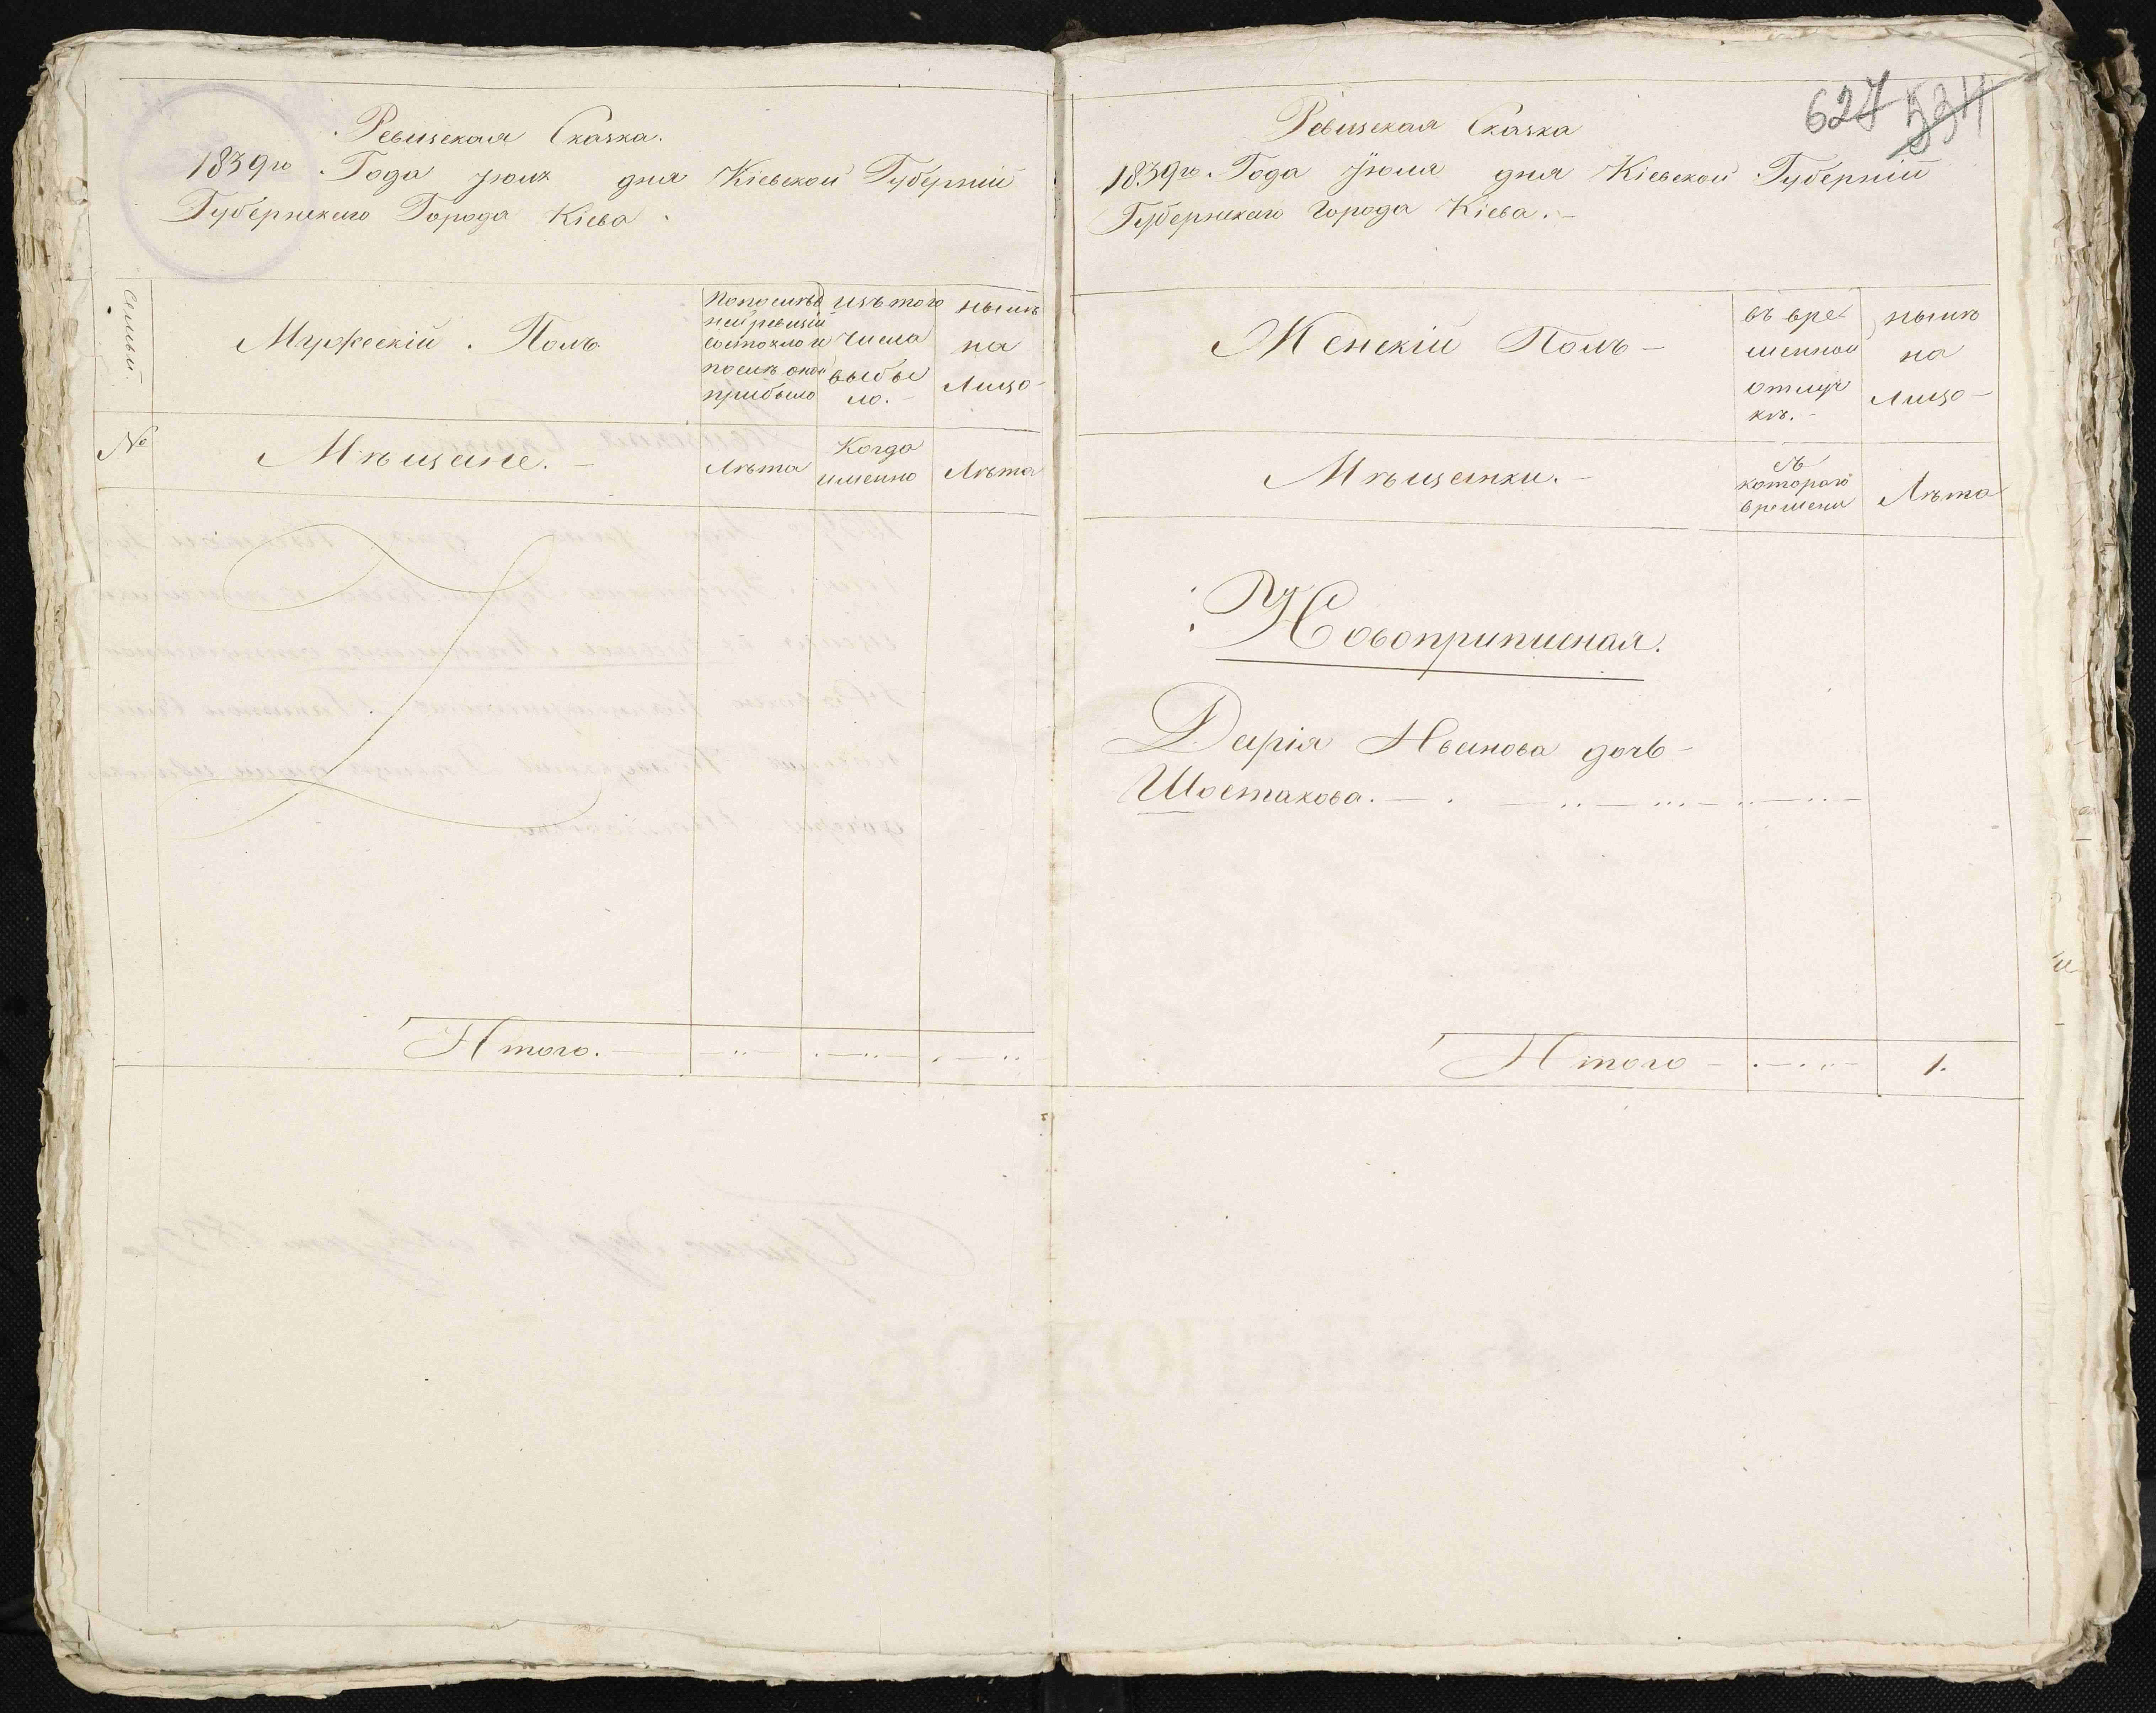 Ревизская Сказка.
1839го Года Іюля дня Кіевской Губерніи
Губернскаго Города Кіева.
Семьи.
Мужескій Полъ
По послѣд
ней ревизіи
состояло и
послѣ оной
прибыло
изъ того
числа
выбы
ло.
нынѣ
на
Лицо
№
Мѣщане.
Лѣта
Когда
именно
Лѣта
Итого.
627 534
Ревизская Сказка
1839го. Года Іюля дня Кіевской Губерніи
Губернскаго Города Кіева.
Женскій Полъ
въ вре
менной
отлуч
кѣ.
нынѣ
на
Лицо
Мѣщанки.
съ
котораго
времени
Лѣта
Новоприписная.
Дарія Иванова дочь
Шостакова.
Итого 1.